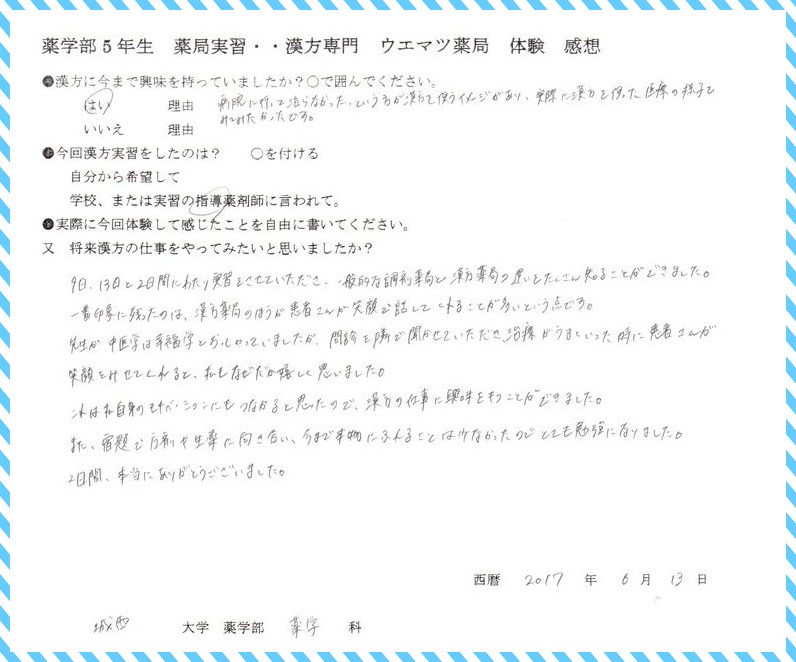 薬学部5年生 薬局実習・・漢方専門 ウエマツ薬局 体験 感想
●漢方に今まで興味を持っていましたか?○で囲んでください。
はい 理由 病院に行って治らなかった、という方が漢方を使うイメージがあり、実際に漢方を使った医療の様子を
みてみたかったです。
いいえ 理由
●今回漢方実習をしたのは? ○を付ける
自分から希望して
学校、または実習の指導薬剤師に言われて。
●実際に今回体験して感じたことを自由に書いてください。
又 将来漢方の仕事をやってみたいと思いましたか?
9日、13日と2日間にわたり実習をさせていただき、一般的な調剤薬局と漢方薬局の違いをたくさん知ることができました。
一番印象に残ったのは、漢方薬局のほうが患者さんが笑顔で話してくれることが多いという点です。
先生が中医学は幸福学とおっしゃっていましたが、問診を隣で聞かせていただき、治療がうまくいった時に患者さんが
笑顔をみせてくれると、私もなぜだか嬉しく思いました。
これは私自身のモチベーションにもつながると思ったので、漢方の仕事に興味をもつことができました。
また、宿題で方剤や生薬に向き合い、今まで本物にふれることは少なかったのでとても勉強になりました。
2日間、本当にありがとうございました。
西暦 2017 年 6 月 13 日
城西 大学 薬学部 薬学 科